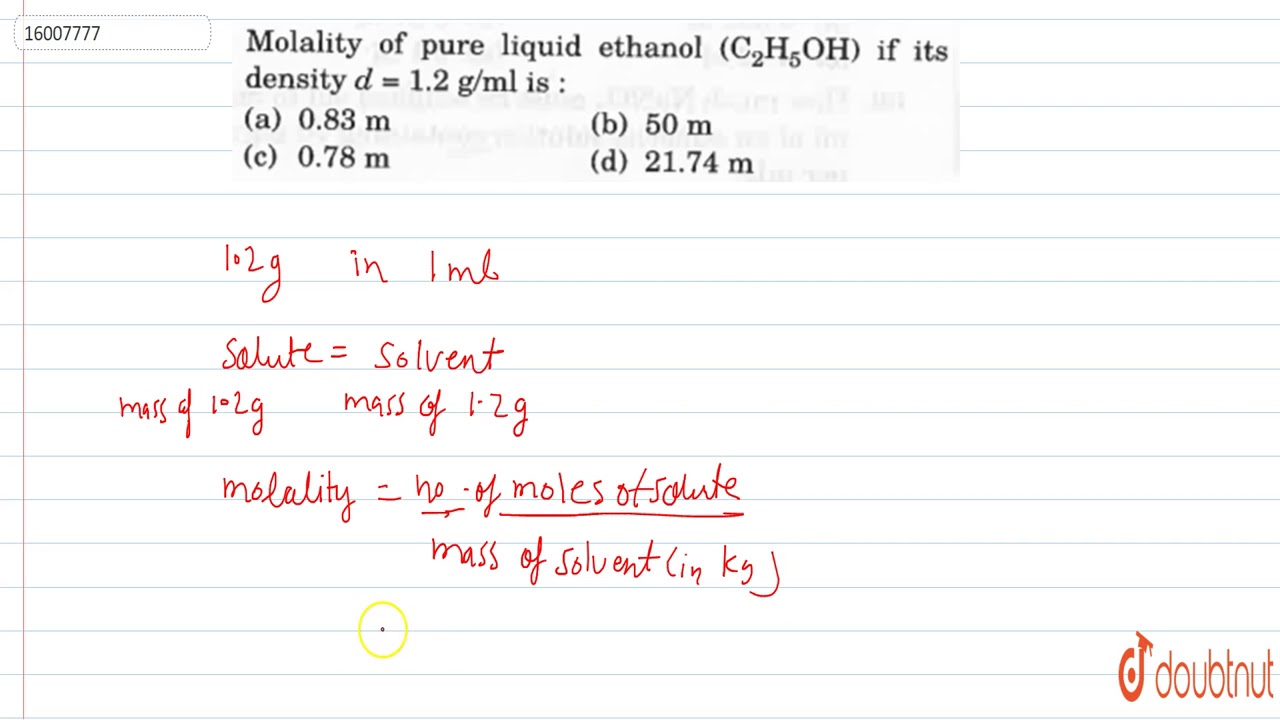 16007777
Molality of pure liquid ethanol (C₂H₅OH) if its
density d = 1.2 g/ml is :
(a) 0.83 m (b) 50 m
(c) 0.78 m (d) 21.74 m
1.2g in 1ml
Solute = Solvent
mass of 1.2g mass of 1.2g
molality = no. of moles of solute
mass of solvent (in kg)
doubtnut